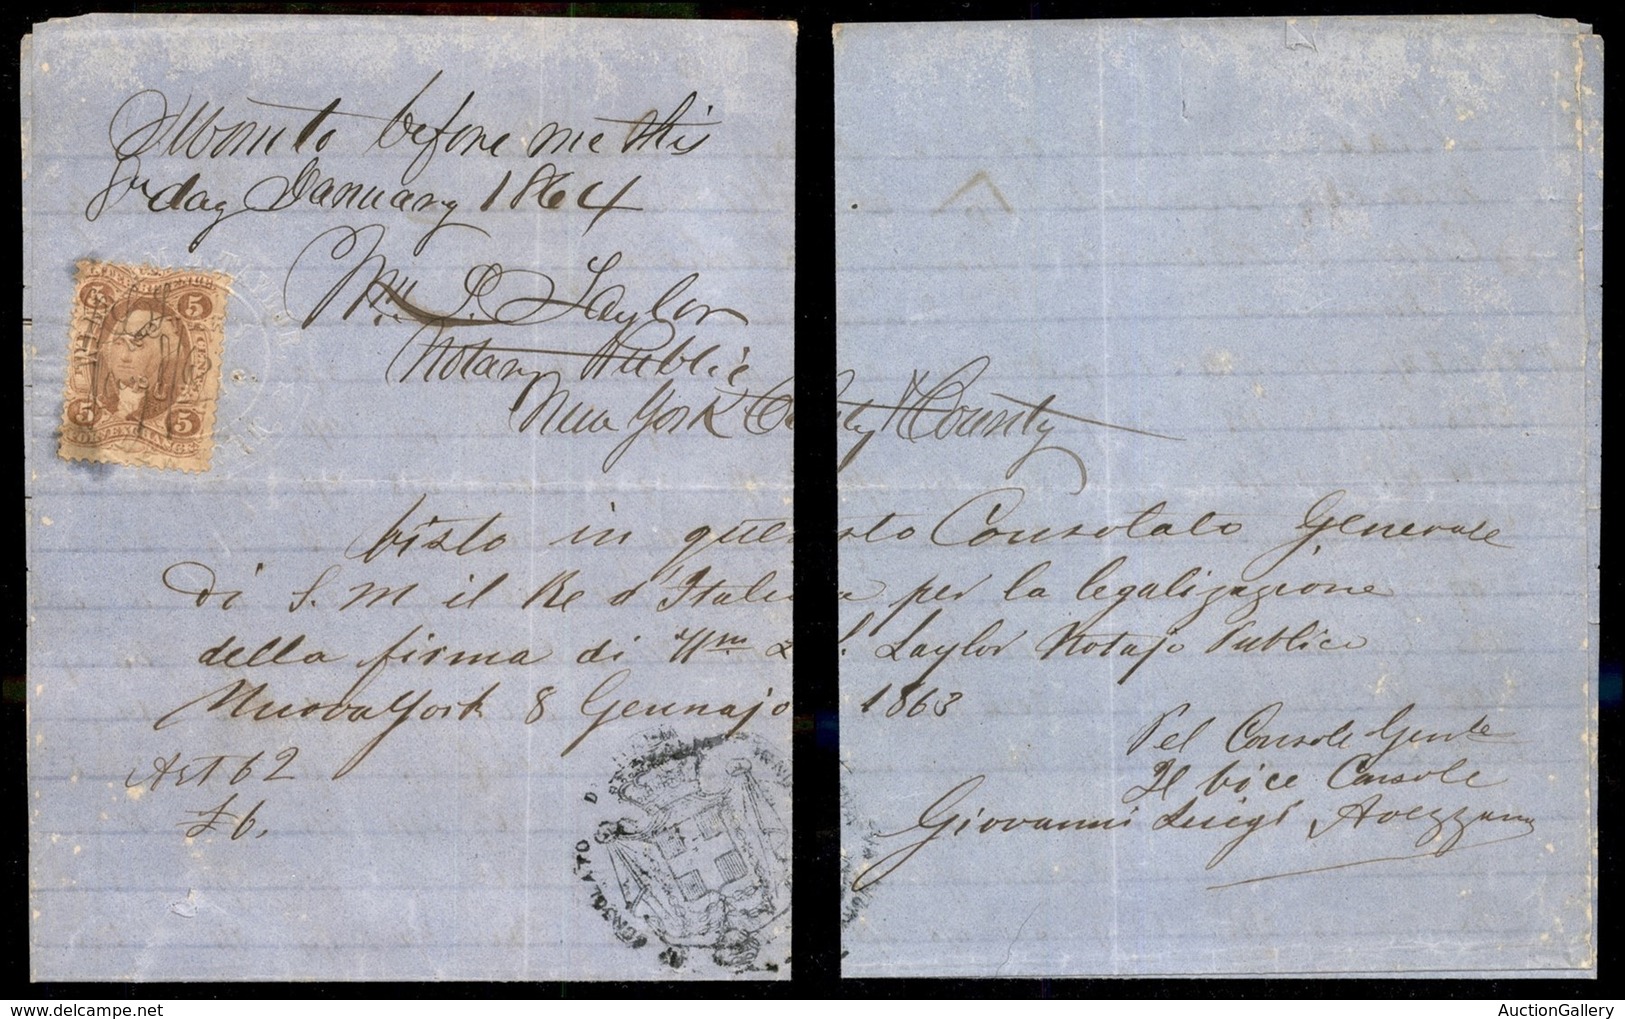 Sworn to before me this
day January 1864
Wm L. Taylor
Notary Public
New York City & County
Visto in questo Consolato Generale
di S. M il Re d'Italia per la legalizzazione
della firma di Wm L. Taylor Notajo Publico
Nuova York 8 Gennajo 1863
Pel Console Gen.le
Il Vice Console
Giovanni Luigi Avezzana
Art 62
£ 6.
5 5
5 5
CONSOLATO D
AuctionGallery